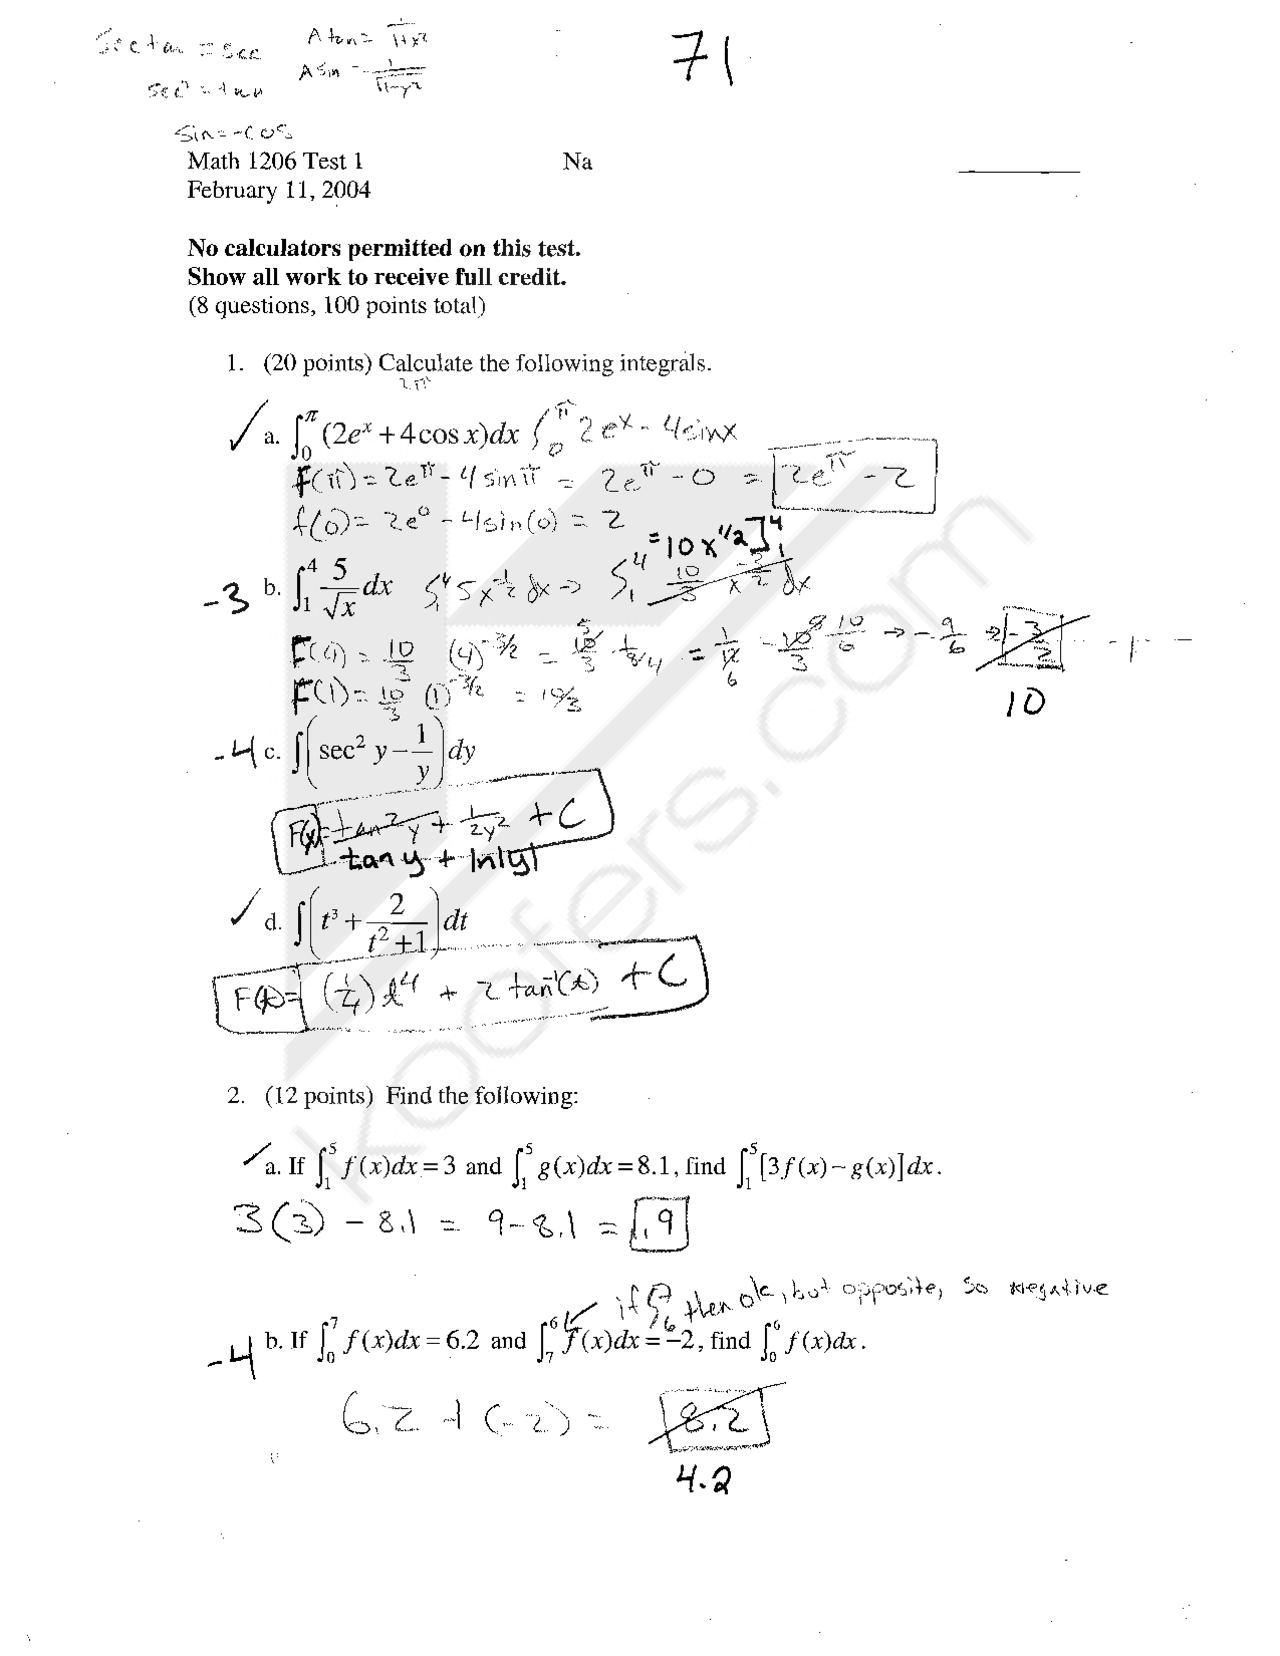 Sec tan = sec
Atan = 1/1+x²
71
sec² = tan
Asin = 1/√1-y²
sin = -cos
Math 1206 Test 1 Na
February 11, 2004
No calculators permitted on this test.
Show all work to receive full credit.
(8 questions, 100 points total)
1. (20 points) Calculate the following integrals.
2π
✓ a. ∫₀^π (2eˣ + 4cos x)dx ∫₀^π 2eˣ - 4sinx
F(π) = 2e^π - 4sinπ = 2e^π - 0 = 2e^π - 2
f(0) = 2e⁰ - 4sin(0) = 2
= 10x^1/2]₁⁴
-3 b. ∫₁⁴ 5/√x dx ∫₁⁴ 5x^-1/2 dx → ∫₁⁴ 10/3 x^-3/2 dx
F(4) = 10/3 (4)^-3/2 = 10/3 · 1/8 4 = 1/12 6 - 10/3 8 10/6 → -9/6 → -3/2
F(1) = 10/3 (1)^-3/2 = 10/3
10
-4 c. ∫(sec² y - 1/y)dy
F(x) = tan² y + 1/2y² + C
tan y + ln|y|
✓ d. ∫(t³ + 2/t²+1)dt
F(t) = (1/4)t⁴ + 2 tan⁻¹(t) + C
2. (12 points) Find the following:
✓ a. If ∫₁⁵ f(x)dx = 3 and ∫₁⁵ g(x)dx = 8.1, find ∫₁⁵ [3f(x) - g(x)]dx.
3(3) - 8.1 = 9 - 8.1 = .9
if ∫₆⁷ then ok, but opposite, so negative
-4 b. If ∫₀⁷ f(x)dx = 6.2 and ∫₇⁶ f(x)dx = -2, find ∫₀⁶ f(x)dx.
6.2 + (-2) = 8.2
4.2
koofers.com